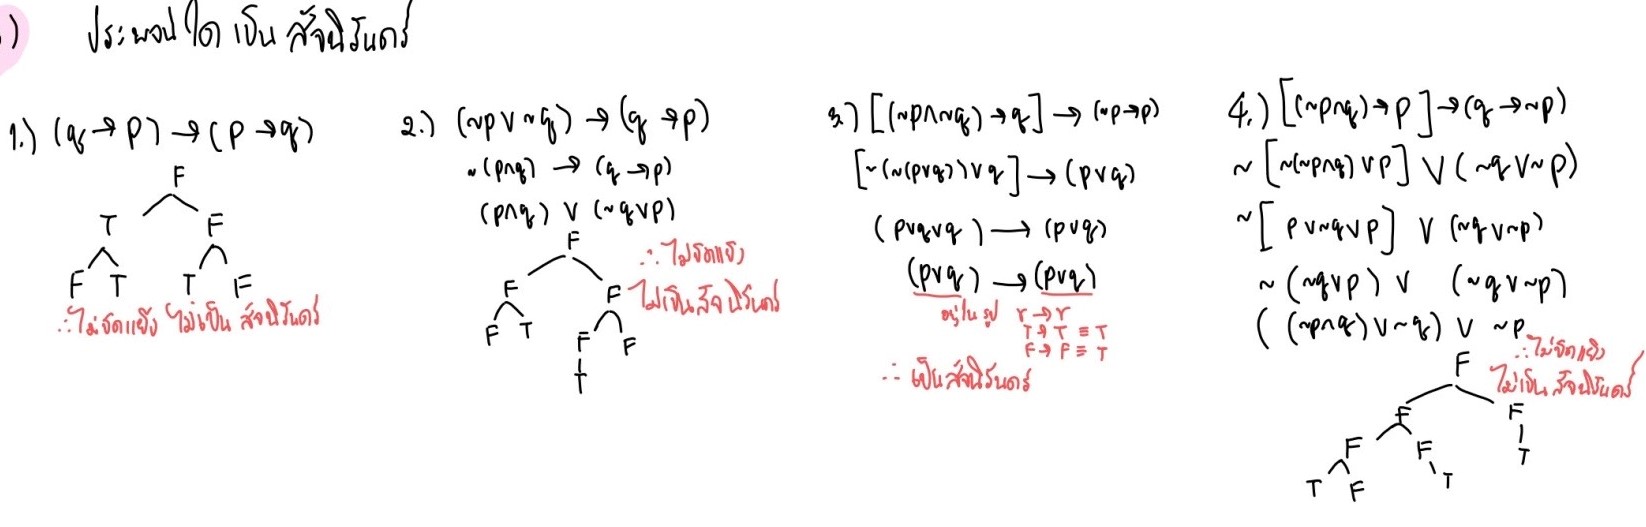 ) ประพจน์ใด เป็น สัจนิรันดร์
1.) (q → p) → (p → q)
F
T F
F T T F
∴ ไม่ขัดแย้ง ไม่เป็น สัจนิรันดร์
2.) (~p ∨ ~q) → (q → p)
~(p∧q) → (q → p)
(p∧q) ∨ (~q∨p)
F
F F
F T F F
T
∴ ไม่ขัดแย้ง
ไม่เป็น สัจนิรันดร์
3.) [(~p∧~q) → q] → (~p→p)
[~(~(p∨q))∨q] → (p∨q)
(p∨q∨q) → (p∨q)
(p∨q) → (p∨q)
อยู่ในรูป r → r
T → T ≡ T
F → F ≡ T
∴ เป็นสัจนิรันดร์
4.) [(~p∧q) → p] → (q → ~p)
~[~(~p∧q)∨p] ∨ (~q∨~p)
~[p∨~q∨p] ∨ (~q∨~p)
~(~q∨p) ∨ (~q∨~p)
((~p∧q)∨~q) ∨ ~p
∴ ไม่ขัดแย้ง
ไม่เป็น สัจนิรันดร์
F
F F
F F T
T F T